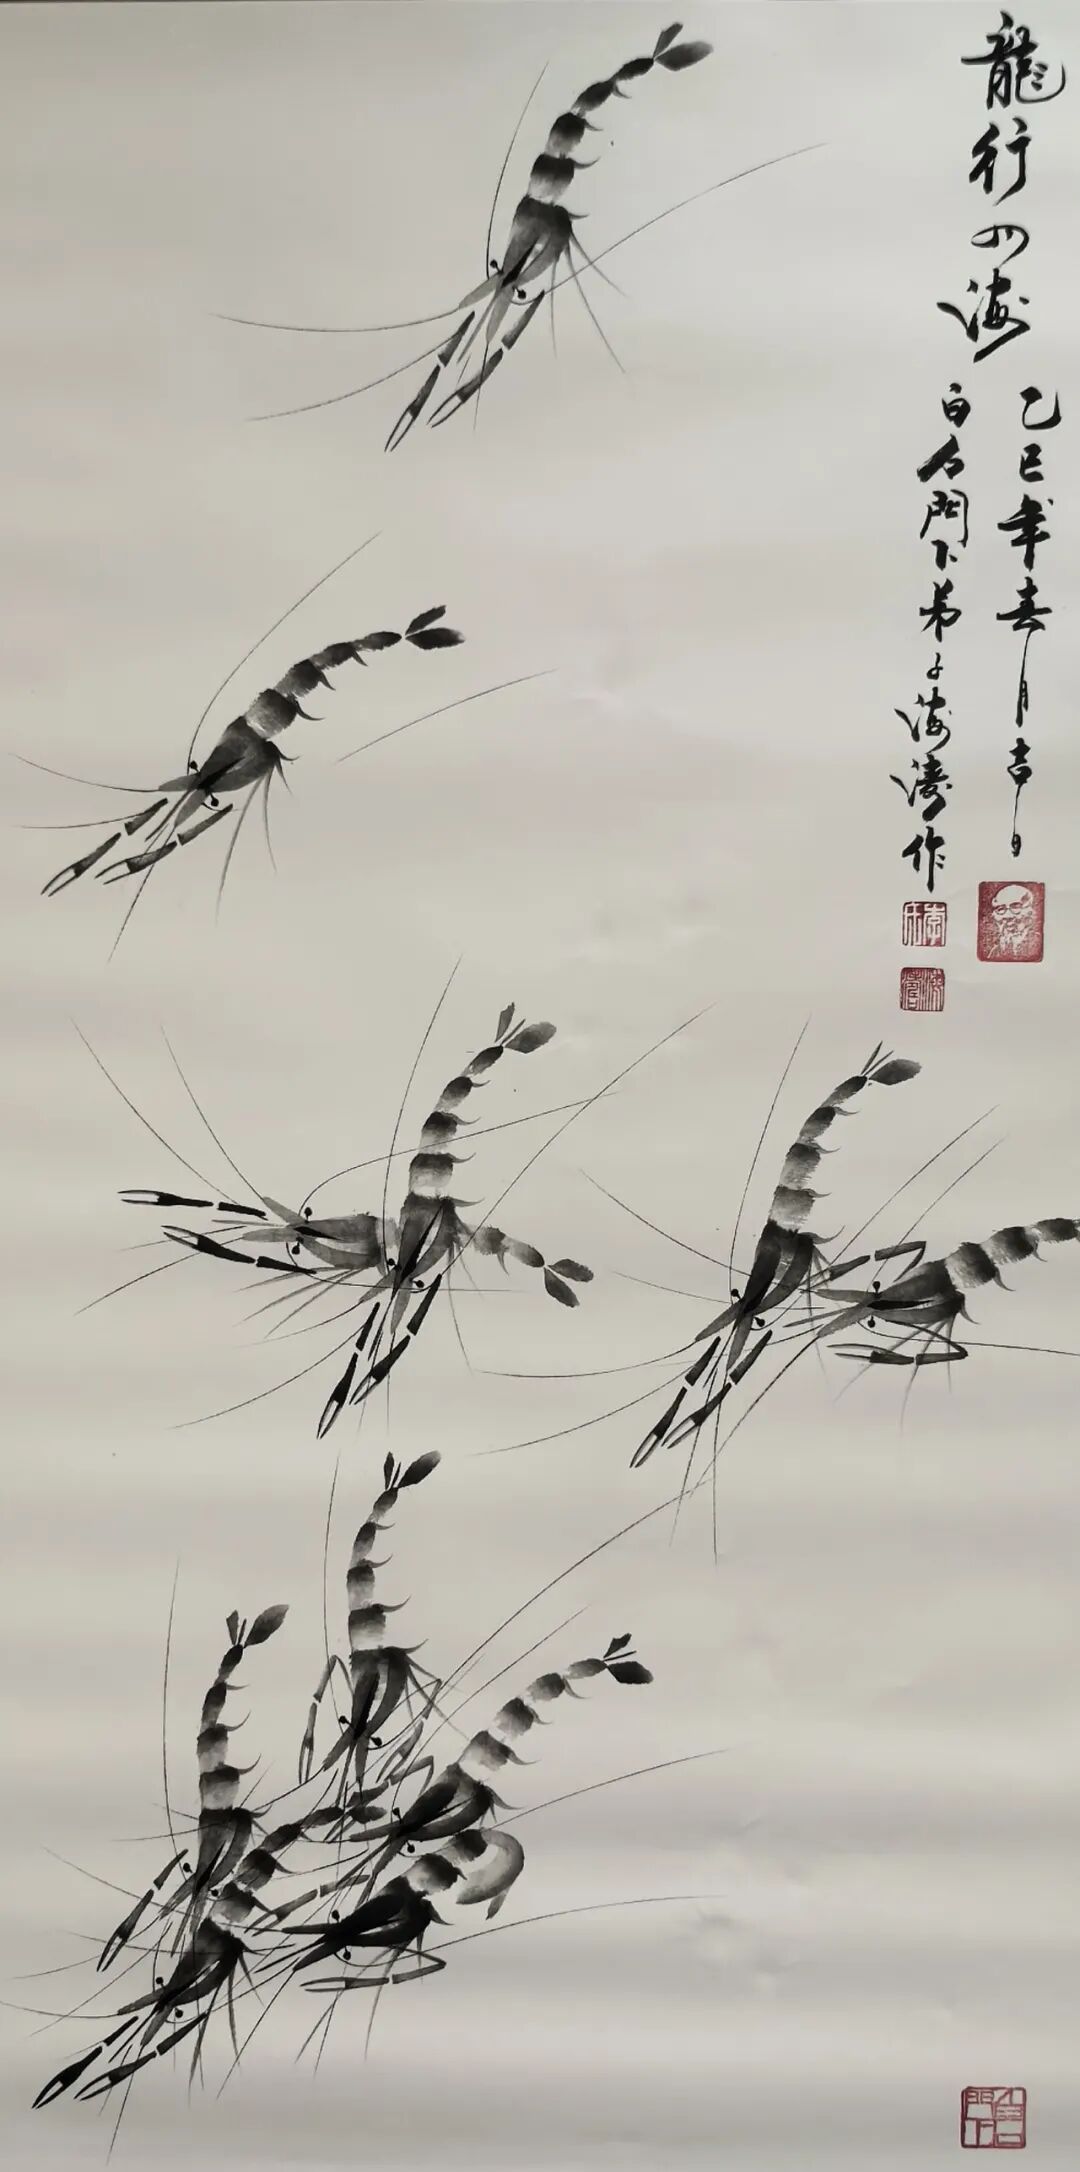 龍行四海
乙巳年春月吉日
白石門下弟子海濤作